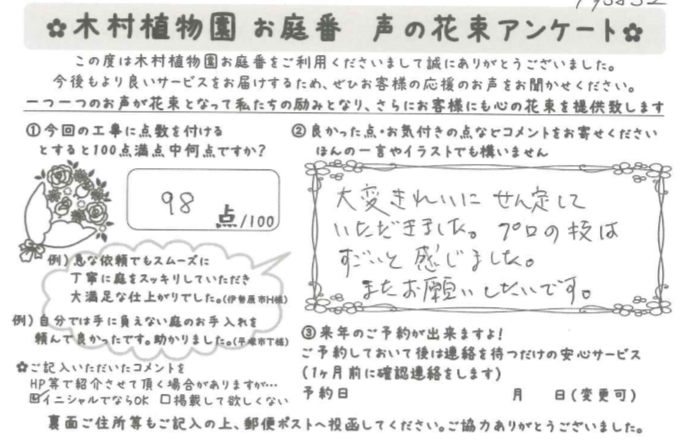 ✿木村植物園 お庭番 声の花束アンケート✿
この度は木村植物園お庭番をご利用くださいまして誠にありがとうございました。
今後もより良いサービスをお届けするため、ぜひお客様の応援のお声をお聞かせください。
一つ一つのお声が花束となって私たちの励みとなり、さらにお客様にも心の花束を提供致します
①今回の工事に点数を付ける
とすると100点満点中何点ですか?
98 点/100
例)急な依頼でもスムーズに
丁寧に庭をスッキリしていただき
大満足な仕上がりでした。(伊勢原市H様)
例)自分では手に負えない庭のお手入れを
頼んで良かったです。助かりました。(平塚市T様)
✿ご記入いただいたコメントを
HP等で紹介させて頂く場合がありますが…
☑イニシャルでならOK ☐掲載して欲しくない
②良かった点・お気付きの点などコメントをお寄せください
ほんの一言やイラストでも構いません
大変きれいに せん定して
いただきました。プロの技は
すごいと感じました。
またお願いしたいです。
③来年のご予約が出来ますよ!
ご予約しておいて後は連絡を待つだけの安心サービス
(1ヶ月前に確認連絡をします)
予約日 月 日(変更可)
裏面ご住所等もご記入の上、郵便ポストへ投函してください。ご協力ありがとうございました。